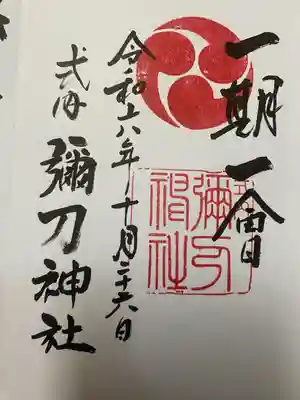 一期一會
彌刀神社
令和六年十月二十六日
式内 彌刀神社